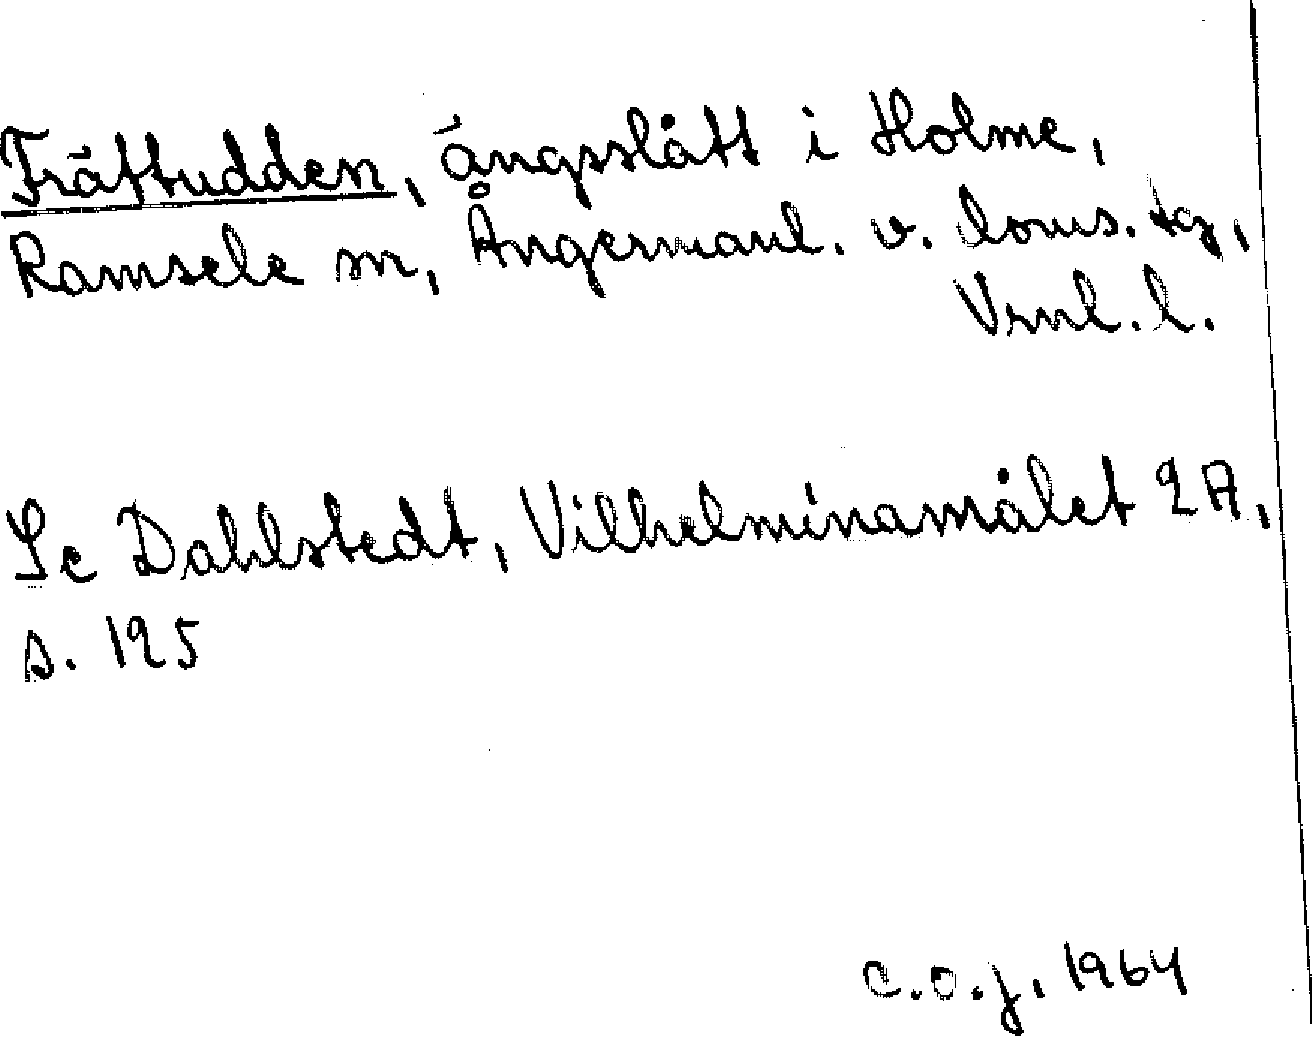 Trättudden, ängsslått i Holme,
Ramsele sn, Ångermanl. v. doms. sg,
Vrnl. l.
Se Dahlstedt, Vilhelminamålet 2A,
s. 125
C.O.J. 1964